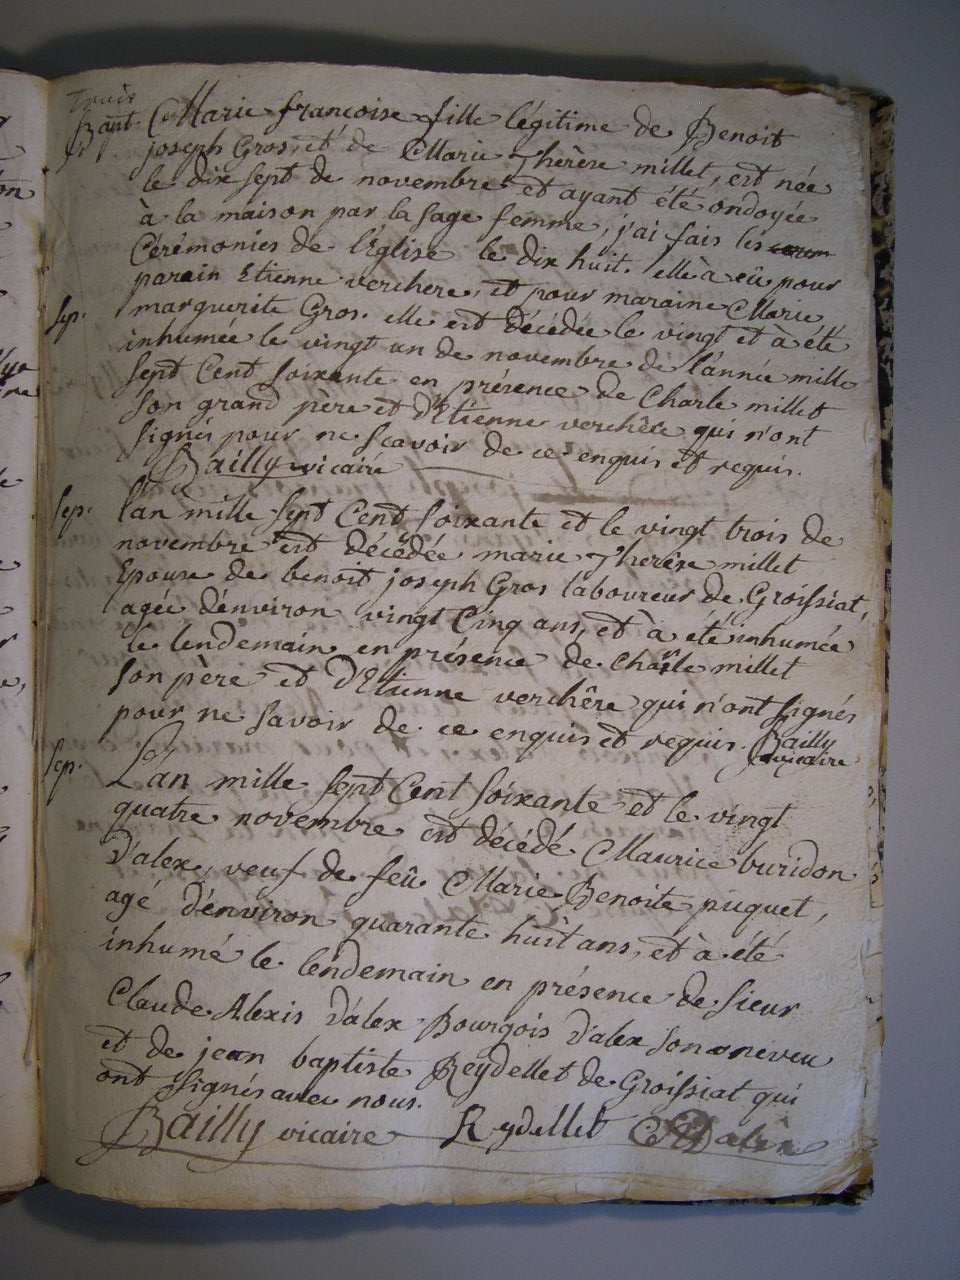 Bapt. Marie francoise fille légitime de Benoit
joseph Gros, et de Marie Therère millet, est née
le dix sept de novembre et ayant été ondoyée
à la maison par la sage femme, j'ai fais les
Cérémonies de l'Église le dix huit. elle à eû pour
parain Etienne verchere, et pour maraine Marie
Sep. marguerite Gros. elle est décédée le vingt et à été
inhumée le vingt un de novembre de l'année mille
sept Cent soixante en présence de Charle millet
son grand père et d'Etienne verchêre qui n'ont
signés pour ne scavoir de ce enquis et requis.
Bailly vicaire
Sep. lan mille sept Cent soixante et le vingt trois de
novembre est décédée marie Therêse millet
Epouse de benoit joseph Gros laboureur de Groissiat,
agée d'énviron vingt Cinq ans, et à été inhumée
le lendemain en présence de Charle millet
son père et d'Etienne verchêre qui n'ont signés
pour ne savoir de ce enquis et requis. Bailly
vicaire
Sep. Lan mille sept Cent soixante et le vingt
quatre novembre est décédé Maurice buridon
d'alex, veuf de feû Marie Benoite puquet,
agé d'énviron quarante huit ans, et à été
inhumé le lendemain en présence de sieur
Claude Alexis d'alex Bourgois d'alex son neveu
et de jean baptiste Reydellet de Groissiat qui
ont signés avec nous.
Bailly vicaire Reydellet